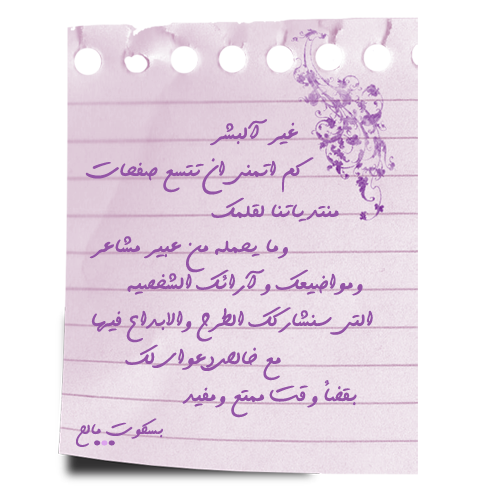 غير آلبشر
كم اتمنى ان تتسع صفحات
منتدياتنا لقلمك
وما يحمله من عبير مشاعر
ومواضيعك و آرائك الشخصيه
التى سنشاركك الطرح والابداع فيها
مع خالص دعواى لك
بقضأ وقت ممتع ومفيد
بسكوت مالح